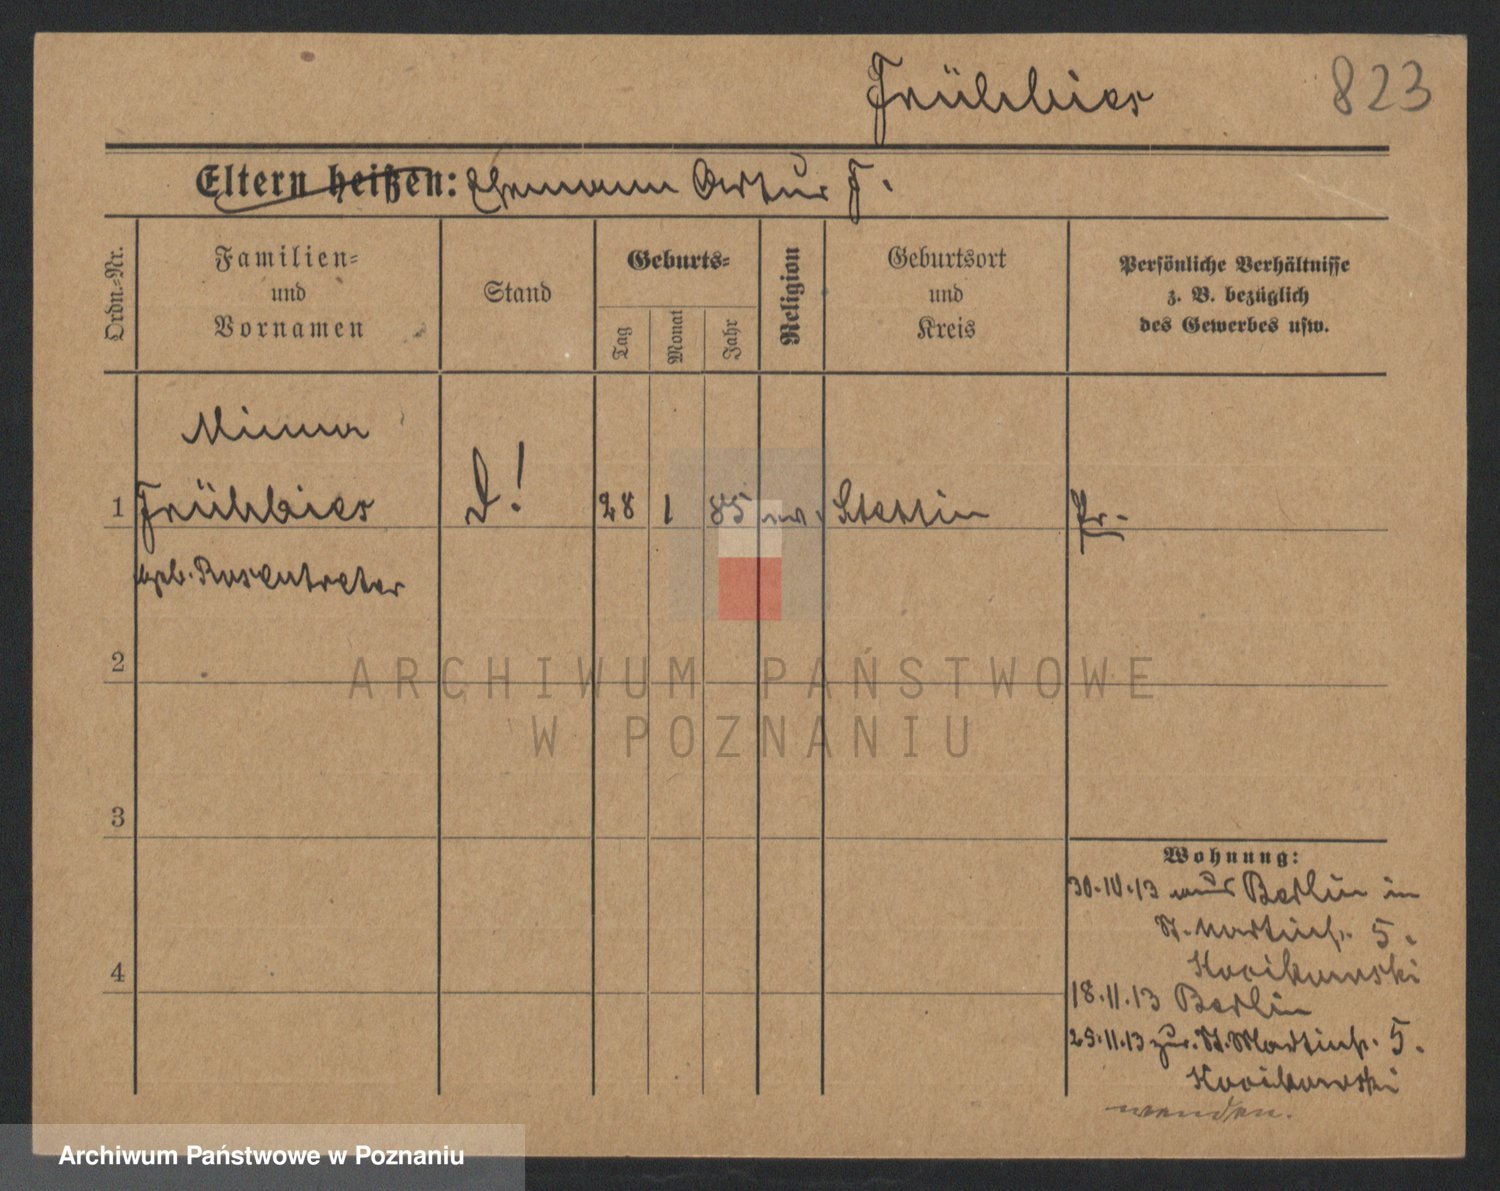 Frühbies
823
Eltern heißen: Ehemann Artur F.
Ordn.-Nr.
Familien-
und
Vornamen
Stand
Geburts-
Tag
Monat
Jahr
Religion
Geburtsort
und
Kreis
Persönliche Verhältnisse
z. B. bezüglich
des Gewerbes usw.
Minna
1 Frühbies D! 28 1 85 ev. Stettin Pr.
geb. Rosentreter
2
3
4
Wohnung:
30.10.13 aus Berlin in
St. Martinstr. 5.
18.11.13 Berlin
25.11.13 zur. St. Martinstr. 5.
wenden.
ARCHIWUM PAŃSTWOWE
W POZNANIU
Archiwum Państwowe w Poznaniu